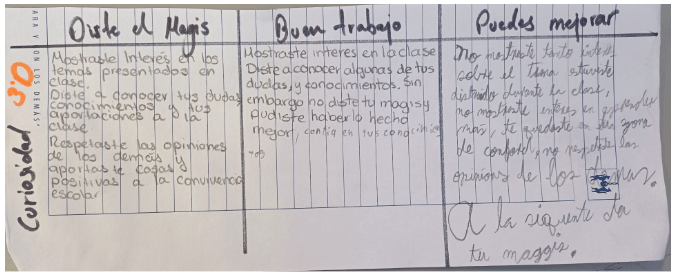 Diste el Magis
Mostraste Interés en los
temas presentados en
clase.
Diste a conocer tus dudas
conocimientos y tus
aportaciones a la
clase
Respetaste las opiniones
de los demás y
aportaste cosas
positivas a la convivencia
escolar
Buen trabajo
Mostraste interes en la clase
Diste a conocer algunas de tus
dudas, y conocimientos. Sin
embargo no diste tu magis y
pudiste haberlo hecho
mejor, confía en tus conocimien
tos
Puedes mejorar
No mostraste tanto interes
sobre el tema, estuviste
distraido durante la clase,
no mostraste interes en aprender
mas, te quedaste en tu zona
de confort, no respetaste las
opinions de los demas.
A la siguiente da
tu maggis.
Curiosidad
ARA Y CON LOS DEMÁS"